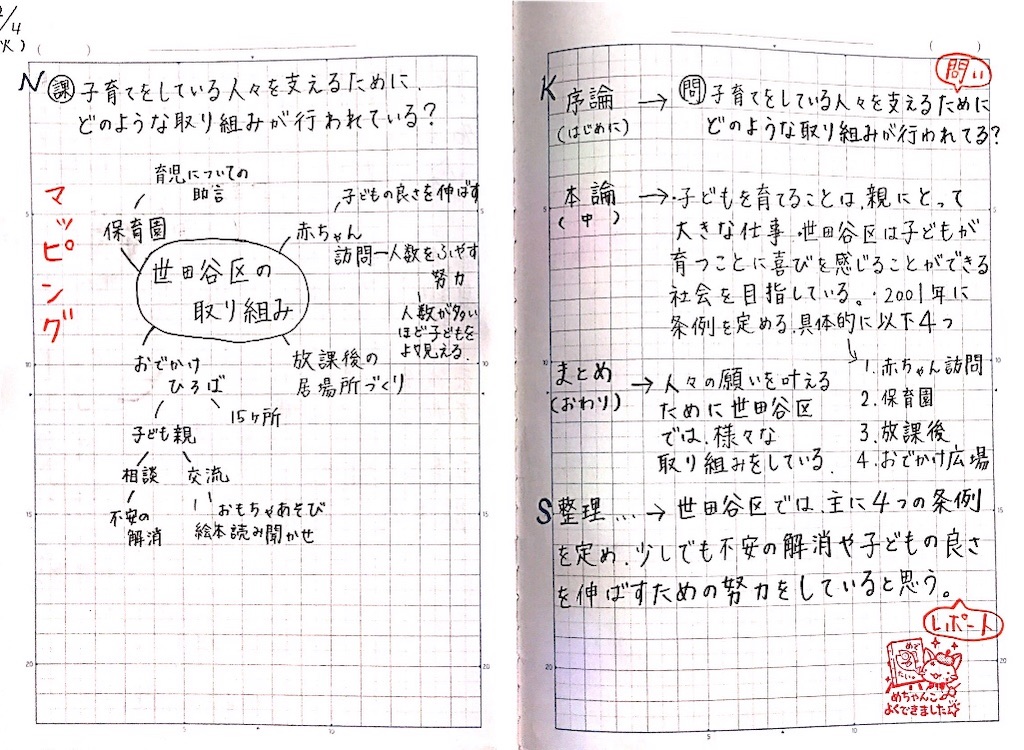 2/4
(火)
N 課 子育てをしている人々を支えるために、
どのような取り組みが行われている?
マッピング
育児についての
助言
保育園
子どもの良さを伸ばす
赤ちゃん
訪問一人数をふやす
努力
人数が多い
ほど子どもを
よく見える。
世田谷区の
取り組み
おでかけ
ひろば
15ヶ所
放課後の
居場所づくり
子ども親
相談
交流
不安の
解消
おもちゃあそび
絵本読み聞かせ
問い
K 序論 → 問 子育てをしている人々を支えるために
(はじめに) どのような取り組みが行われてる?
本論 → ・子どもを育てることは、親にとって
(中) 大きな仕事・世田谷区は子どもが
育つことに喜びを感じることができる
社会を目指している。・2001年に
条例を定める、具体的に以下4つ
1. 赤ちゃん訪問
2. 保育園
3. 放課後
4. おでかけ広場
まとめ → 人々の願いを叶える
(おわり) ために世田谷区
では、様々な
取り組みをしている。
S 整理… → 世田谷区では、主に4つの条例
を定め、少しでも不安の解消や子どもの良さ
を伸ばすための努力をしていると思う。
レポート
めで
たい。
めちゃんこ
よくできました